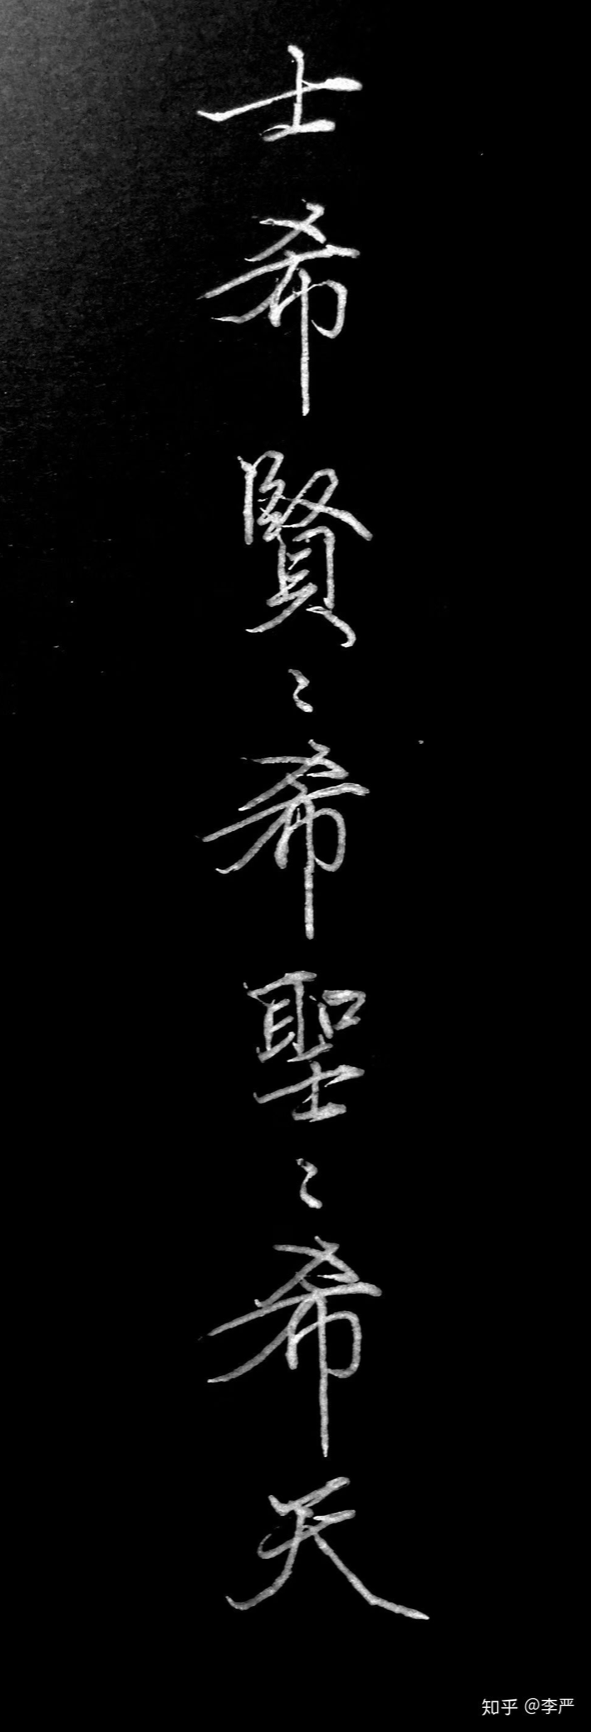 士希賢〻希聖〻希天
知乎 @李严